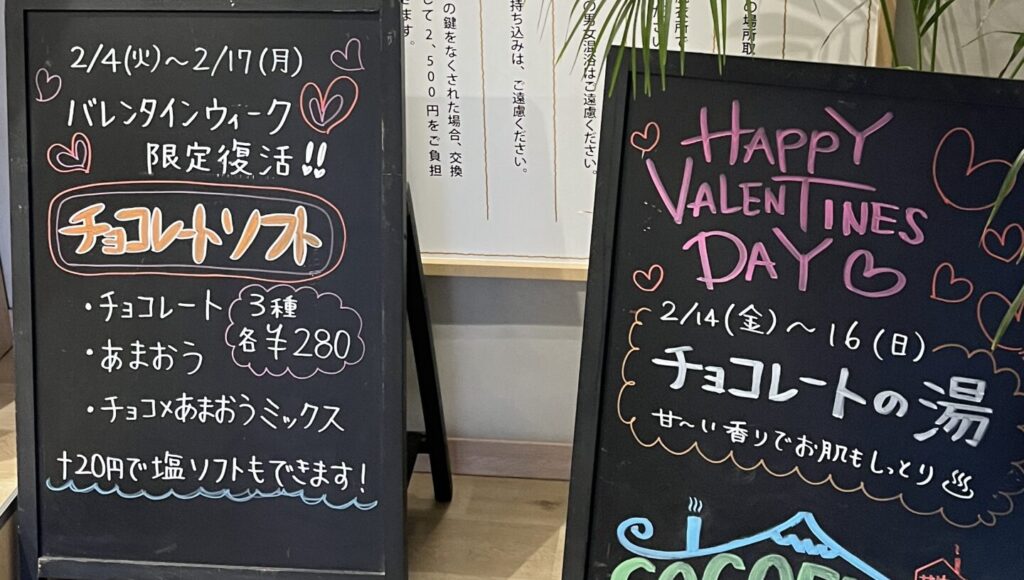 2/4(火)～2/17(月)
バレンタインウィーク
限定復活!!
チョコレートソフト
・チョコレート
・あまおう
・チョコ×あまおうミックス
3種
各¥280
+20円で塩ソフトもできます!
の男女混浴はご遠慮ください。
持ち込みは、ご遠慮ください。
の鍵をなくされた場合、交換
して2,500円をご負担
きます。
HAPPY
VALENTINES
DAY
2/14(金)～16(日)
チョコレートの湯
甘～い香りでお肌もしっとり♨